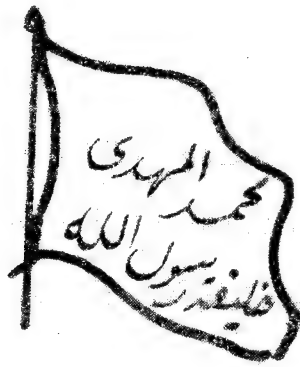 محمد المهدى
خليفة رسول الله